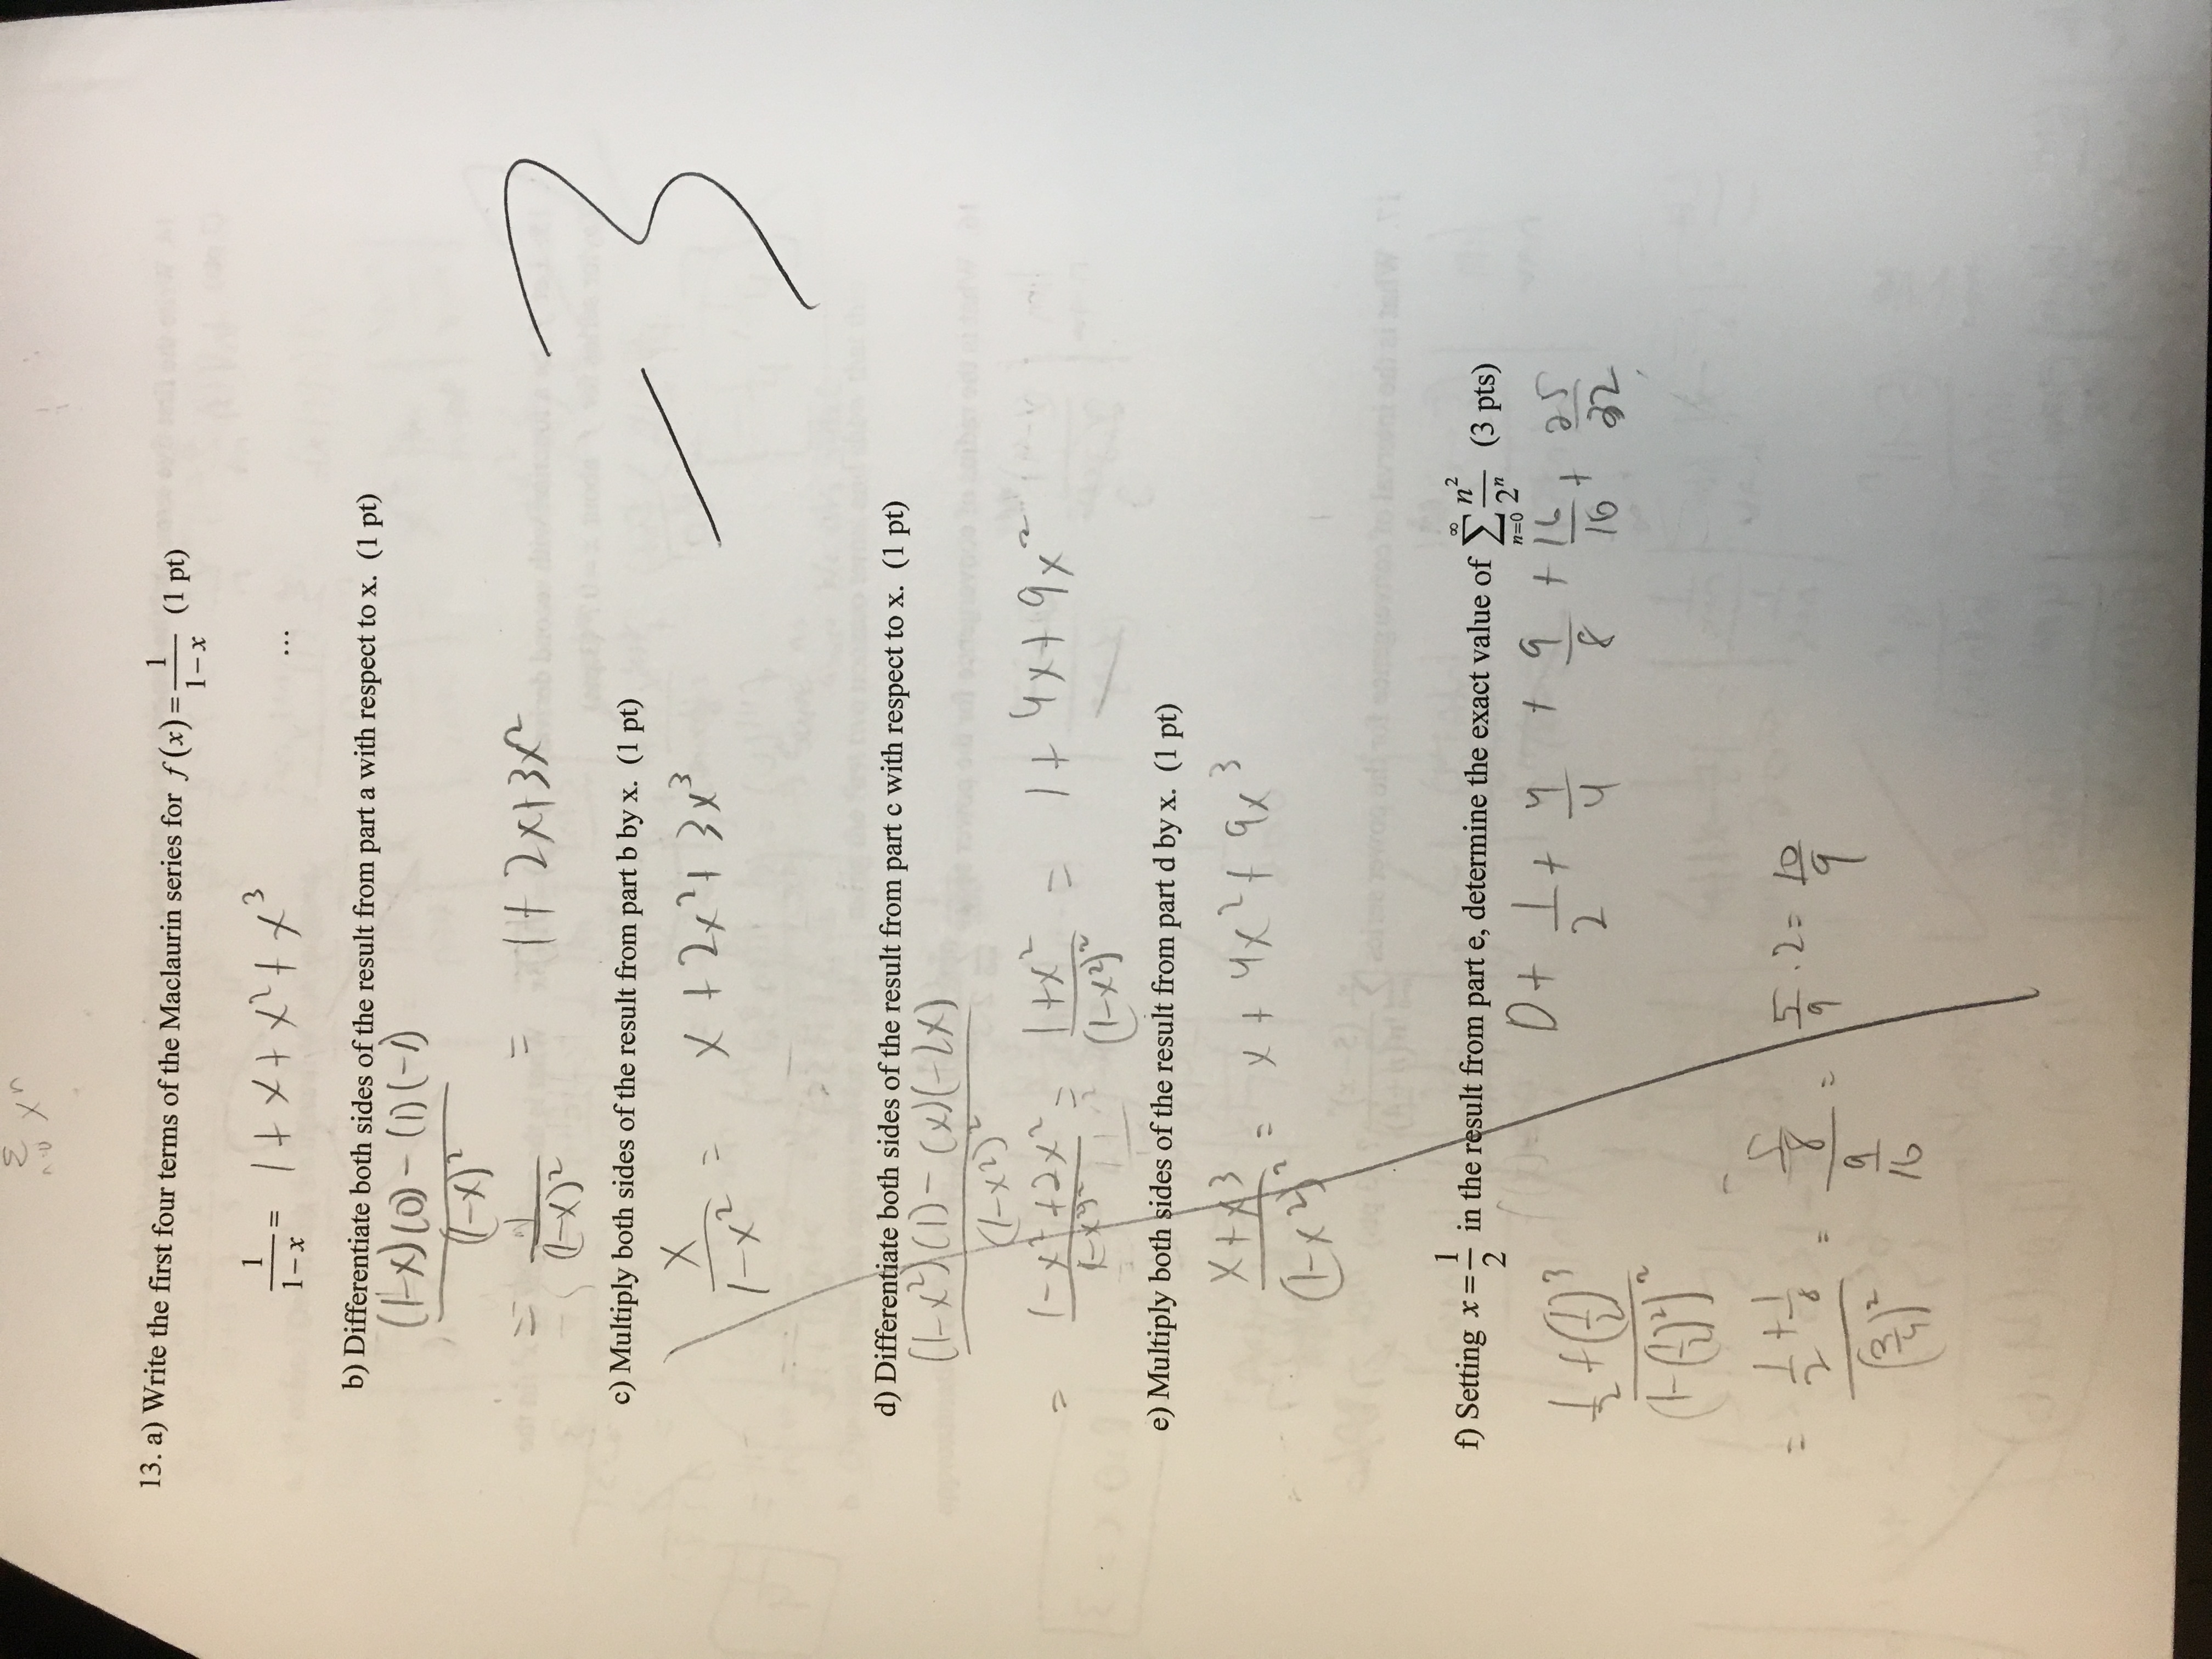 ∑ n=0 xⁿ
13. a) Write the first four terms of the Maclaurin series for f(x) = 1/(1-x) (1 pt)
1/(1-x) = 1 + x + x² + x³ ...
b) Differentiate both sides of the result from part a with respect to x. (1 pt)
((1-x)(0) - (1)(-1))/(1-x)²
= 1/(1-x)² = 1 + 2x + 3x²
c) Multiply both sides of the result from part b by x. (1 pt)
x/(1-x²) = x + 2x² + 3x³
-3
d) Differentiate both sides of the result from part c with respect to x. (1 pt)
((1-x²)(1) - (x)(-2x))/(1-x²)²
= (1-x²+2x²)/(1-x²)² = (1+x²)/(1-x²)² = 1 + 4x + 9x²
e) Multiply both sides of the result from part d by x. (1 pt)
(x+x³)/(1-x²)² = x + 4x² + 9x³
f) Setting x = 1/2 in the result from part e, determine the exact value of ∑ n=0 ∞ n²/2ⁿ (3 pts)
0 + 1/2 + 4/4 + 9/8 + 16/16 + 25/32
(1/2 + (1/2)³)/(1-(1/2)²)²
= (1/2 + 1/8)/(3/4)² = (5/8)/(9/16) = 5/9 · 2 = 10/9